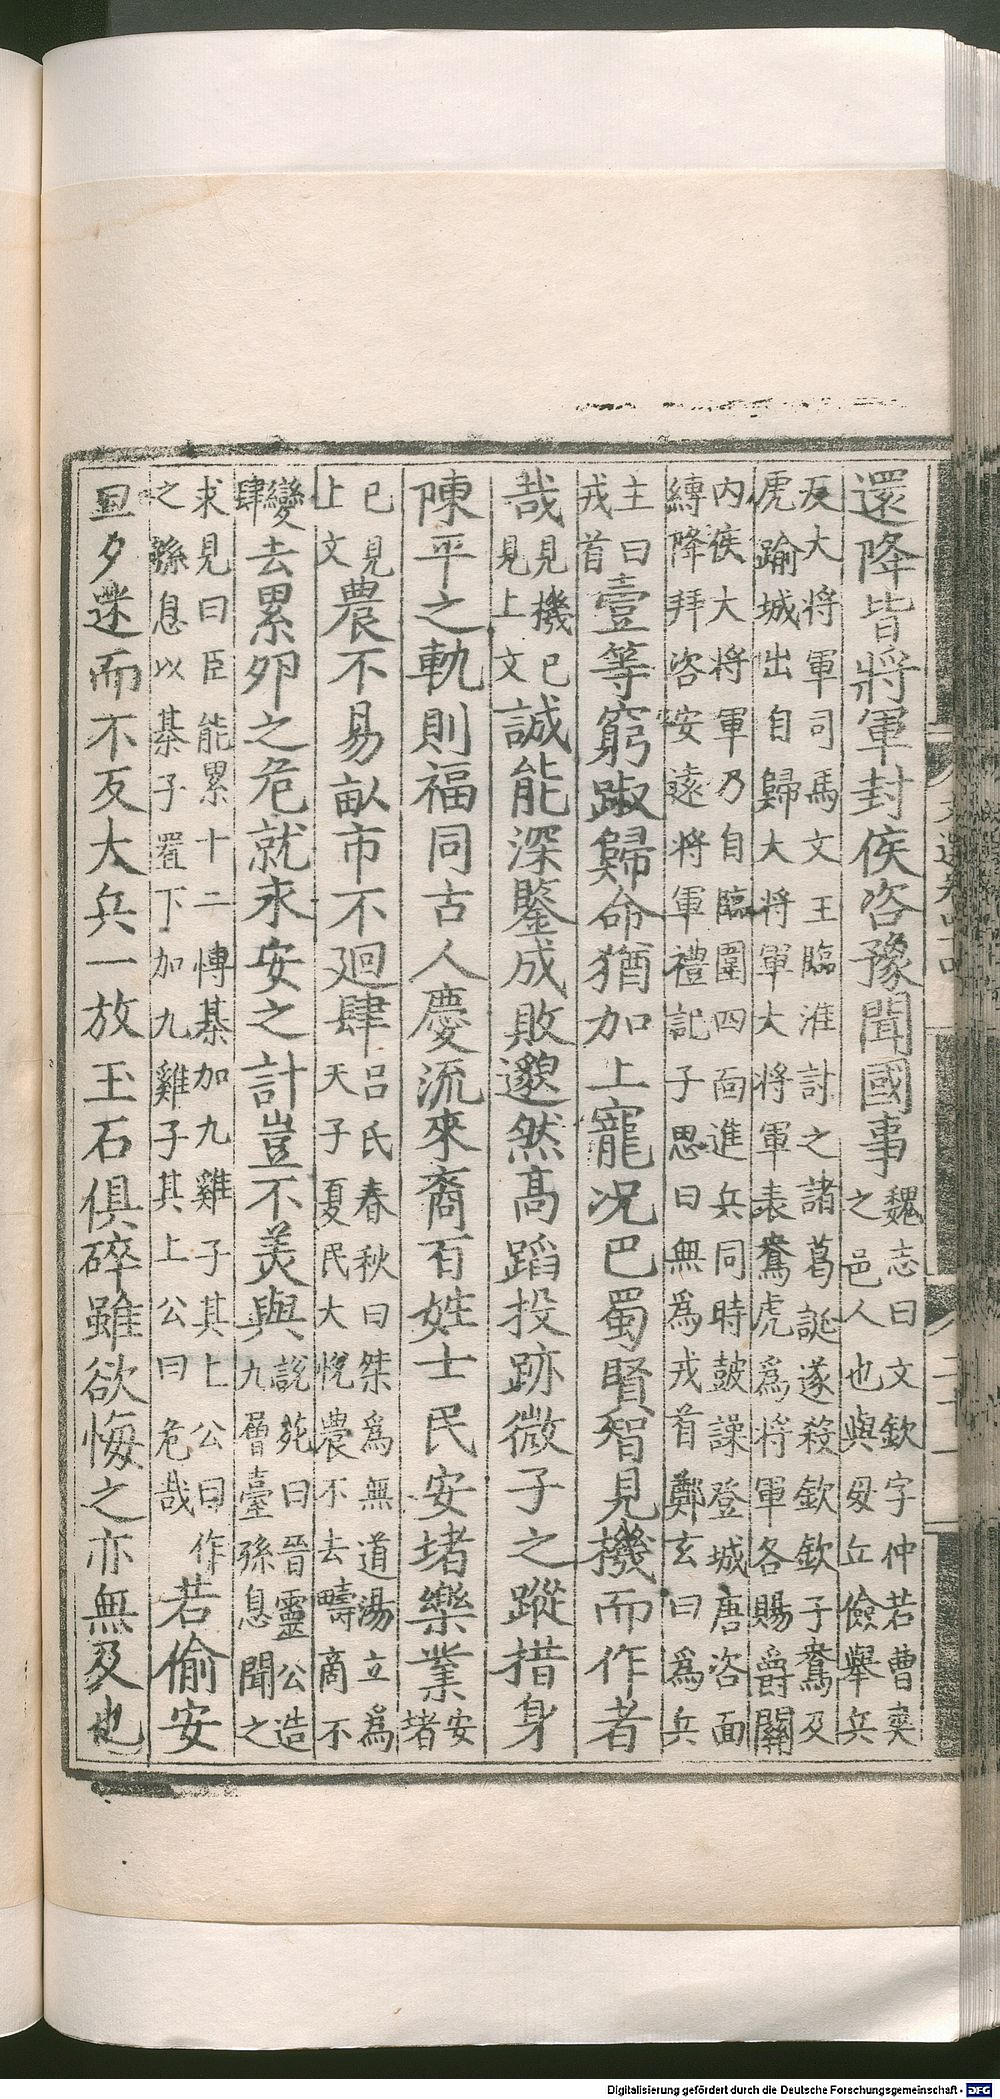 還降皆將軍封侯咨豫聞國事
魏志曰文欽字仲若曹爽
之邑人也與毋丘儉舉兵
反大将軍司馬文王臨淮討之諸葛誕遂殺欽欽子鴦及
虎踰城出自歸大将軍大将軍表鴦虎爲将軍各賜爵關
内侯大将軍乃自臨圍四面進兵同時鼓譟登城唐咨面
縛降拜咨安遠将軍禮記子思曰無爲戎首鄭玄曰爲兵
主曰
戎首
壹等窮踧歸命猶加上寵况巴蜀賢智見機而作者
哉
見機已
見上文
誠能深鑒成敗邈然髙蹈投跡微子之蹤措身
陳平之軌則福同古人慶流來裔百姓士民安堵樂業
安
堵
已見
上文
農不易畝市不廻肆
呂氏春秋曰桀爲無道湯立爲
天子夏民大悅農不去疇商不
變
肆
去累卵之危就永安之計豈不美與
說苑曰晉靈公造
九層臺孫息聞之
求見曰臣能累十二博棊加九雞子其上公曰作
之孫息以棊子置下加九雞子其上公曰危哉
若偷安
旦夕迷而不反大兵一放玉石俱碎雖欲悔之亦無及也
Digitalisierung gefördert durch die Deutsche Forschungsgemeinschaft - DFG